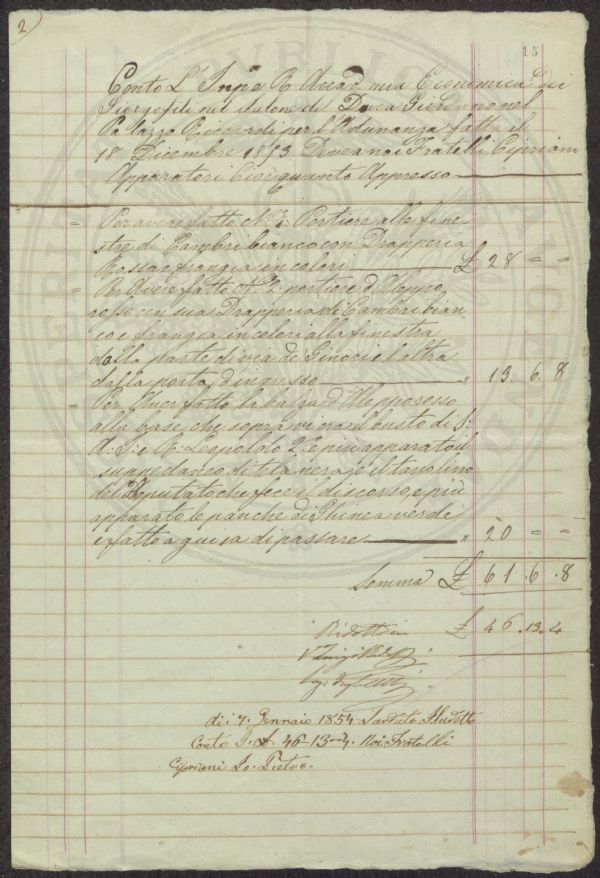 2)
15
Conto L' Inpe R Accad mia Economica dei
Giorgofili nel Salone del Duca Giordano nel
Palazzo Riccardi per l'Adunanza fatta il
18 Dicembre 1853 Deve a noi Fratelli Cipriani
Apparatori Cioe quanto Appresso
= Per avere fatto N. Portiere alle fine
stre di Cambri bianco con Drapperia
Rossa e frangia in colori £ 28 = =
= Per Avere fatto N. 2 portiere d'Aleppo
rosso con sua Drapperia di Cambri bian
co e frangia in colori alla finestra
dalla parte di via de Ginori e l'altra
dalla porta d'ingresso " 13. 6. 8
= Per Aver fatto la balza d'Alepparosso
alla base che sopra vi era il busto di S:
A: I: e R: Leopoldo 2° e più apparato il
suppedaneo di tela nera e il tavolino
del Deputato che fece il discorso e più
apparato le panche di verde
e fatto a guisa di passare " 20 = =
Somma £ 61. 6. 8
Ridotto in £ 46. 13. 4
di: 7. Gennaio 1854
Conto 46-13-4. Noi Fratelli
Cipriani